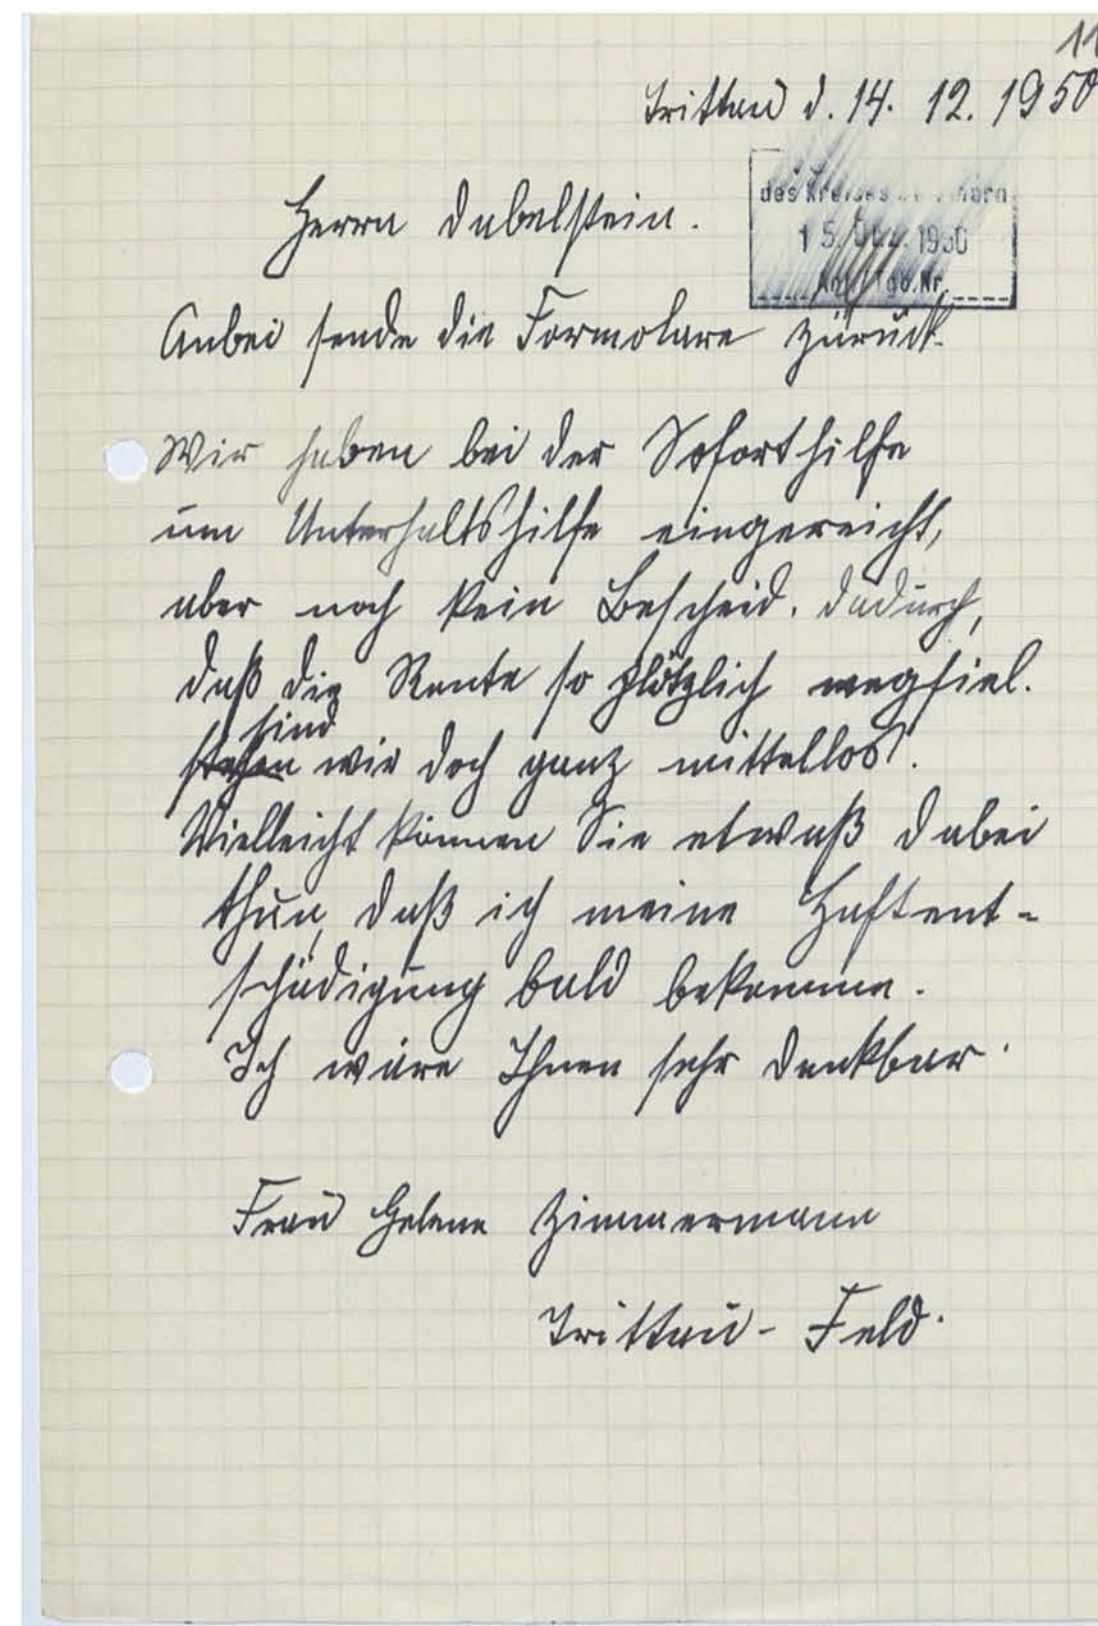 11
Trittau d. 14. 12. 1950
des Kreises
15. Dez. 1950
Tgb.Nr.
Herrn Dabelstein.
Anbei sende die Formolare zürück.
Wir haben bei der Soforthilfe
um Unterhaltshilfe eingereicht,
aber noch kein Bescheid. Dadurch,
daß die Rente so plötzlich wegfiel.
sind
stehen wir doch ganz mittellos.
Vielleicht können Sie etwaß dabei
thun, daß ich meine Haftent-
schädigung bald bekomme.
Ich wäre Ihnen sehr dankbar.
Frau Helene Zimmermann
Trittau - Feld.